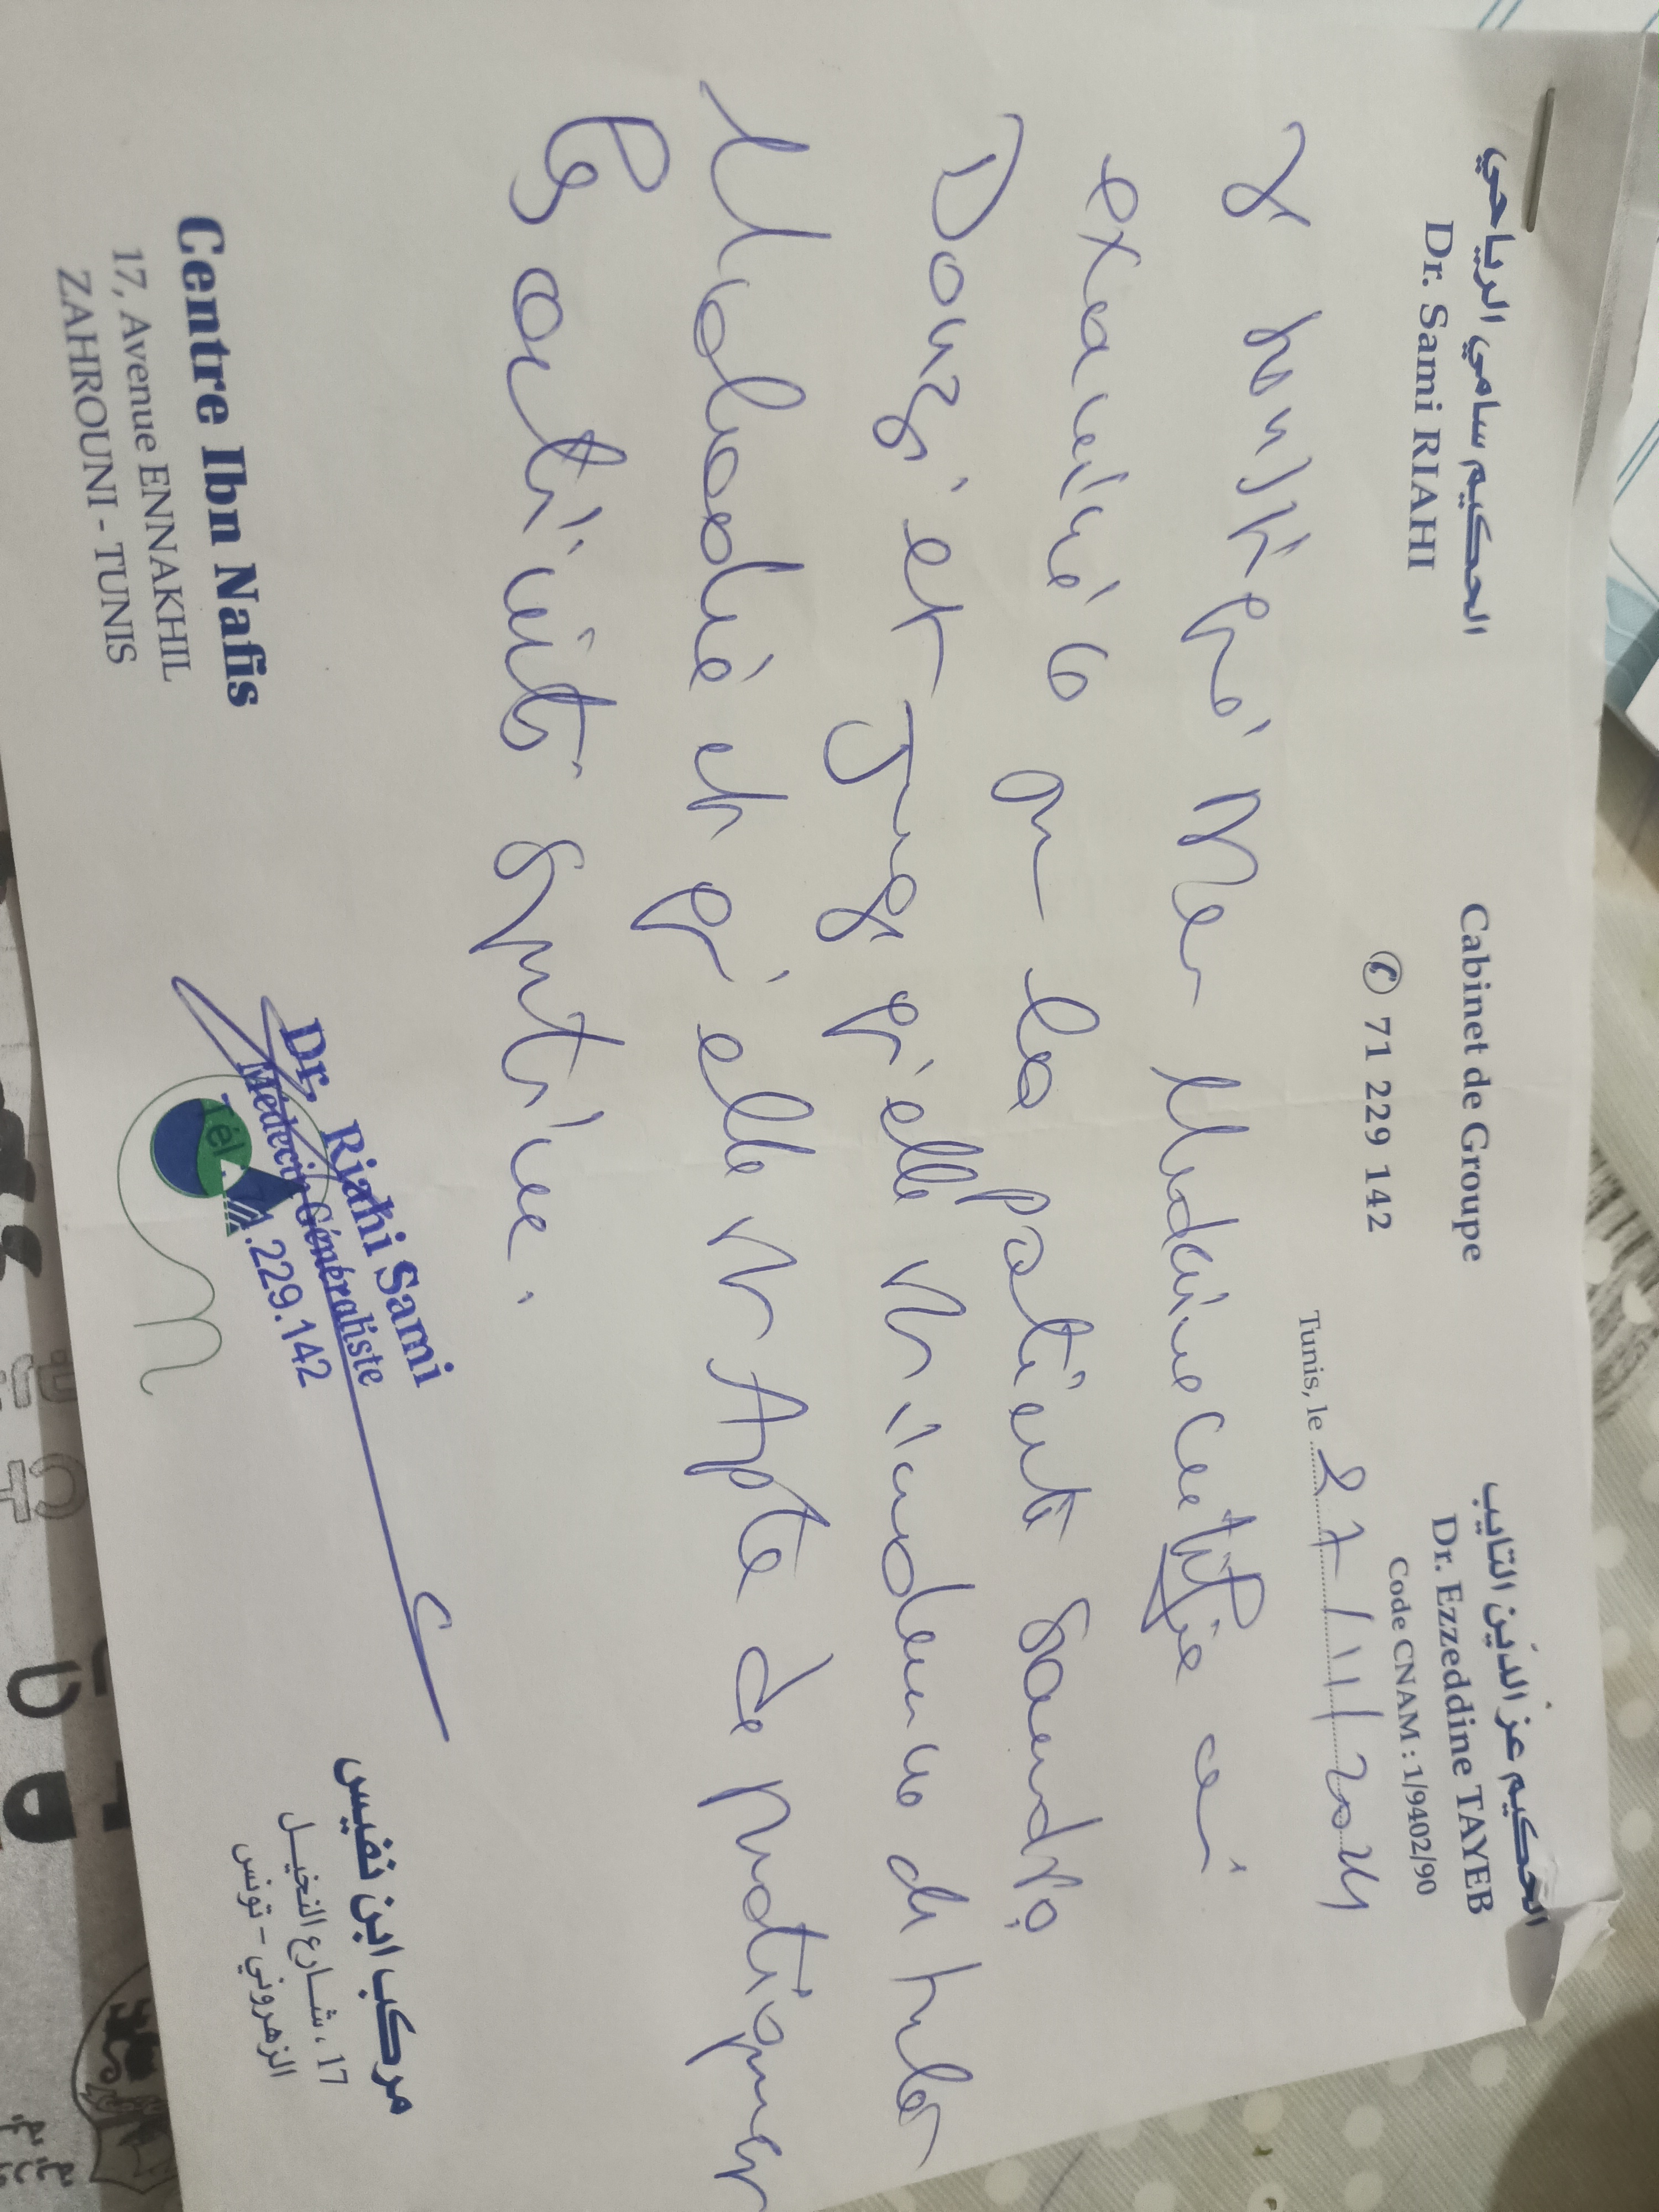 الحكيم سامي الرياحي
Dr. Sami RIAHI
Cabinet de Groupe
✆ 71 229 142
الحكيم عز الدين التايب
Dr. Ezzeddine TAYEB
Code CNAM : 1/9402/90
Tunis, le 27/11/2024
Je soussigné Mer Medecine certifie avoir
examiné ce jour la patiente
Douzi et juge qu'elle est indemne de toute
Maladie et qu'elle est Apte de pratiquer
les activités sportives.
Dr. Riahi Sami
Médecin Généraliste
Tél. 71.229.142
Centre Ibn Nafis
17, Avenue ENNAKHIL
ZAHROUNI - TUNIS
مركب ابن نفيس
17 ، شارع النخيل
الزهروني - تونس